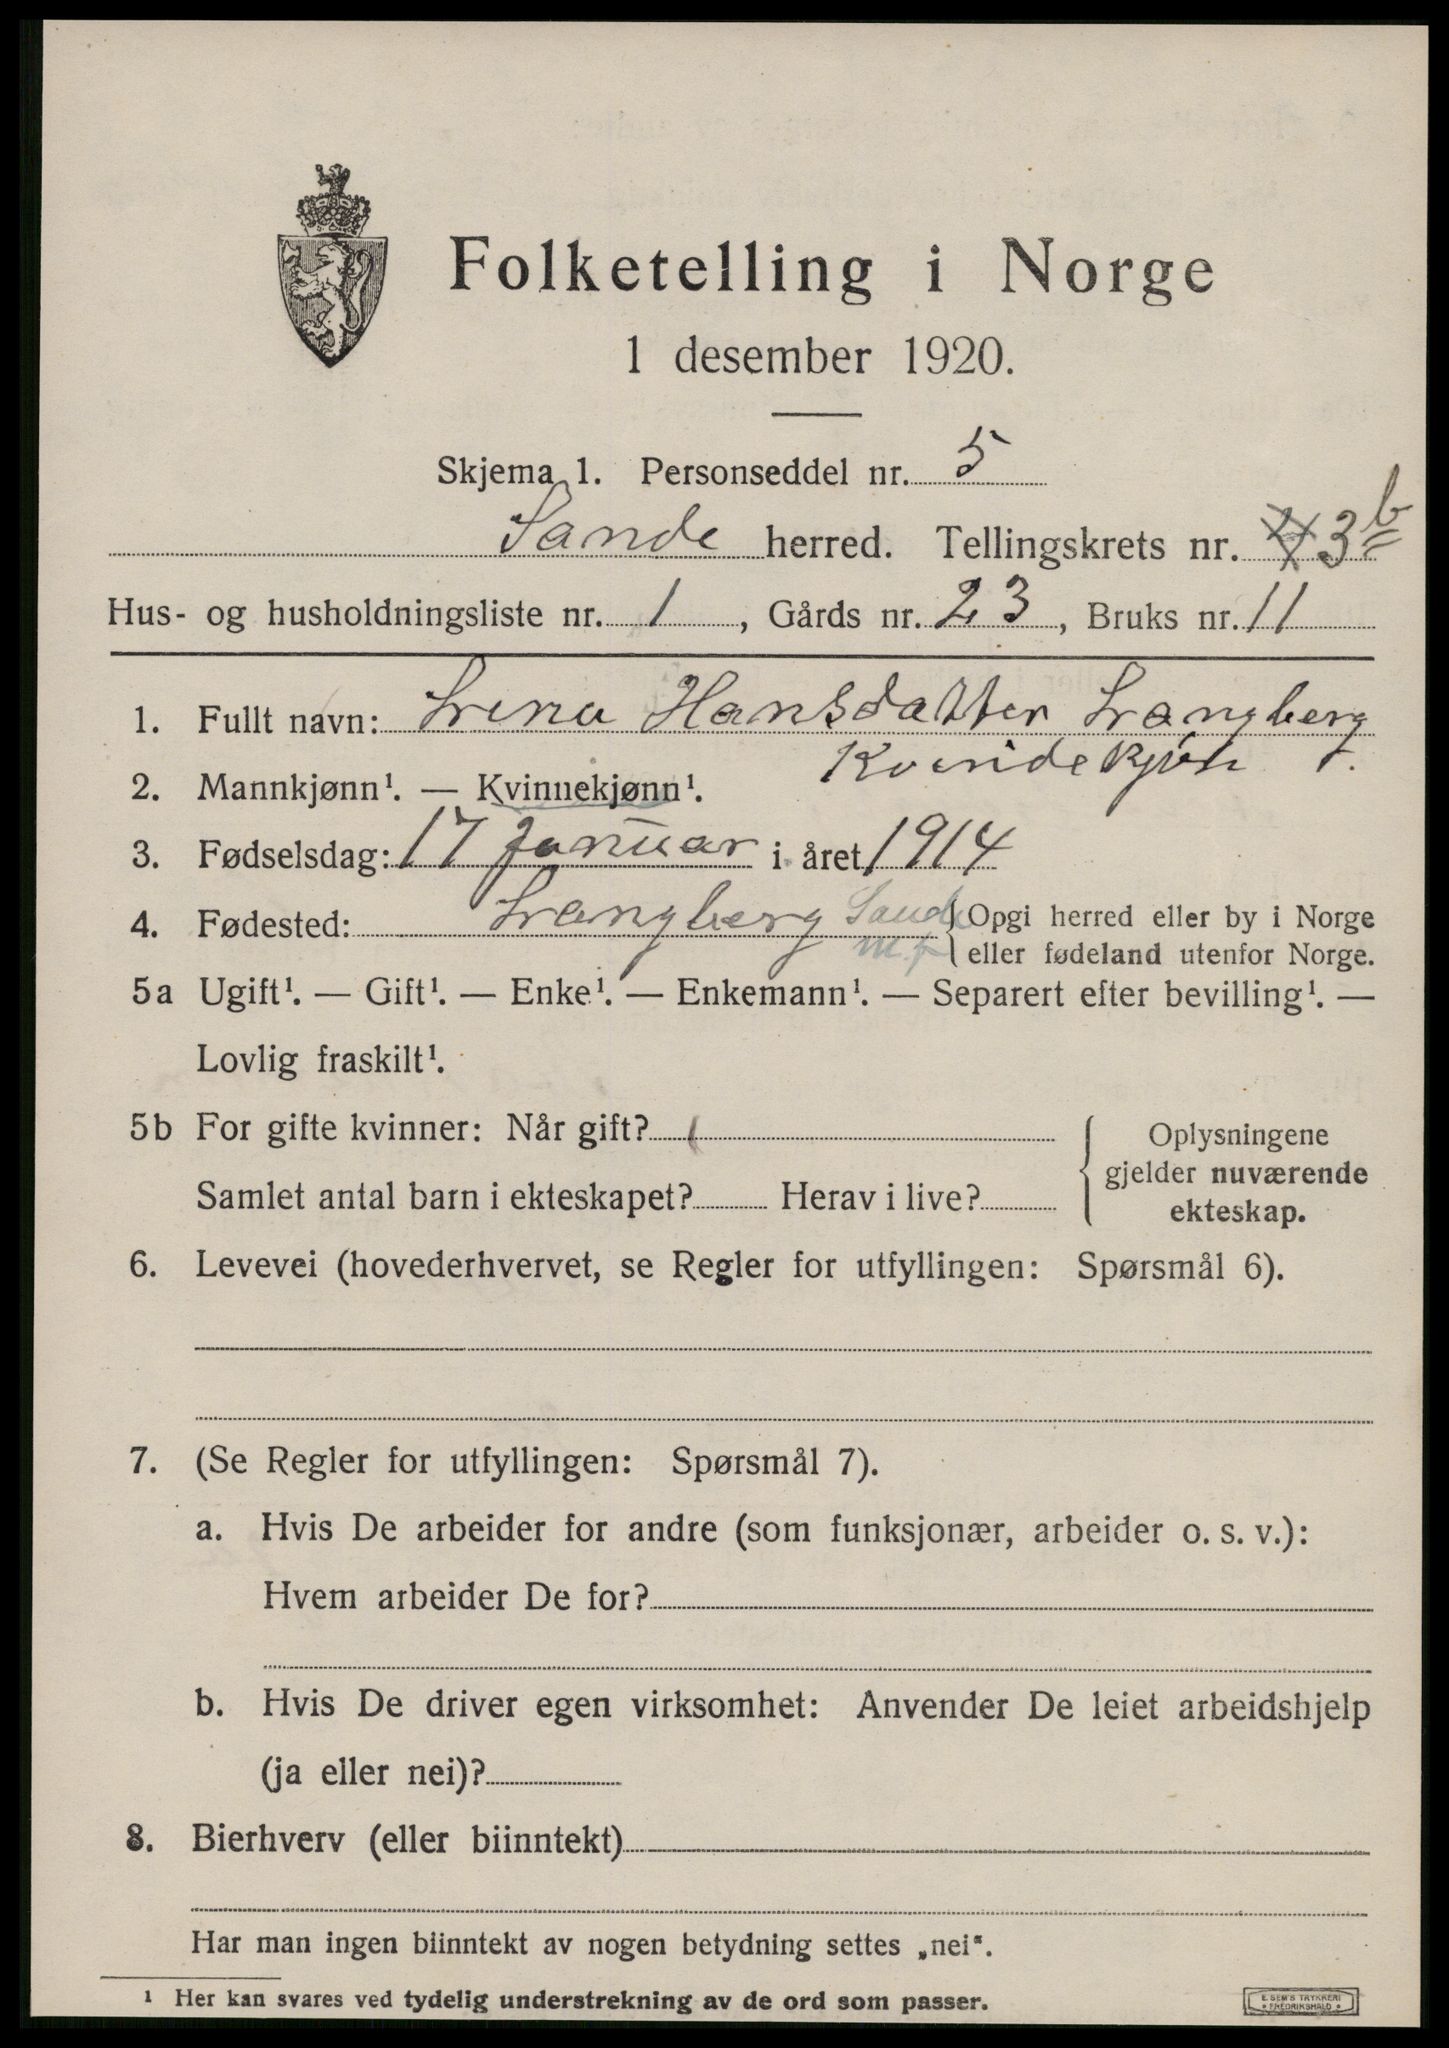 Folketelling i Norge
1 desember 1920.
Skjema 1. Personseddel nr. 5
Sande herred. Tellingskrets nr. 3b
Hus- og husholdningsliste nr. 1, Gårds nr. 23, Bruks nr. 11
1. Fullt navn: Hansdatter
Kvindekjøn
2. Mannkjønn¹. — Kvinnekjønn¹.
3. Fødselsdag: 17 Januar i året 1914
4. Fødested: Sande { Opgi herred eller by i Norge
m.f. eller fødeland utenfor Norge.
5a Ugift¹. — Gift¹. — Enke¹. — Enkemann¹. — Separert efter bevilling¹. —
Lovlig fraskilt¹.
5b For gifte kvinner: Når gift? { Oplysningene
gjelder nuværende
Samlet antal barn i ekteskapet? Herav i live?
ekteskap.
6. Levevei (hovederhvervet, se Regler for utfyllingen: Spørsmål 6).
7. (Se Regler for utfyllingen: Spørsmål 7).
a. Hvis De arbeider for andre (som funksjonær, arbeider o. s. v.):
Hvem arbeider De for?
b. Hvis De driver egen virksomhet: Anvender De leiet arbeidshjelp
(ja eller nei)?
8. Bierhverv (eller biinntekt)
Har man ingen biinntekt av nogen betydning settes „nei".
¹ Her kan svares ved tydelig understrekning av de ord som passer.
E. SEM'S TRYKKERI
FREDRIKSHALD